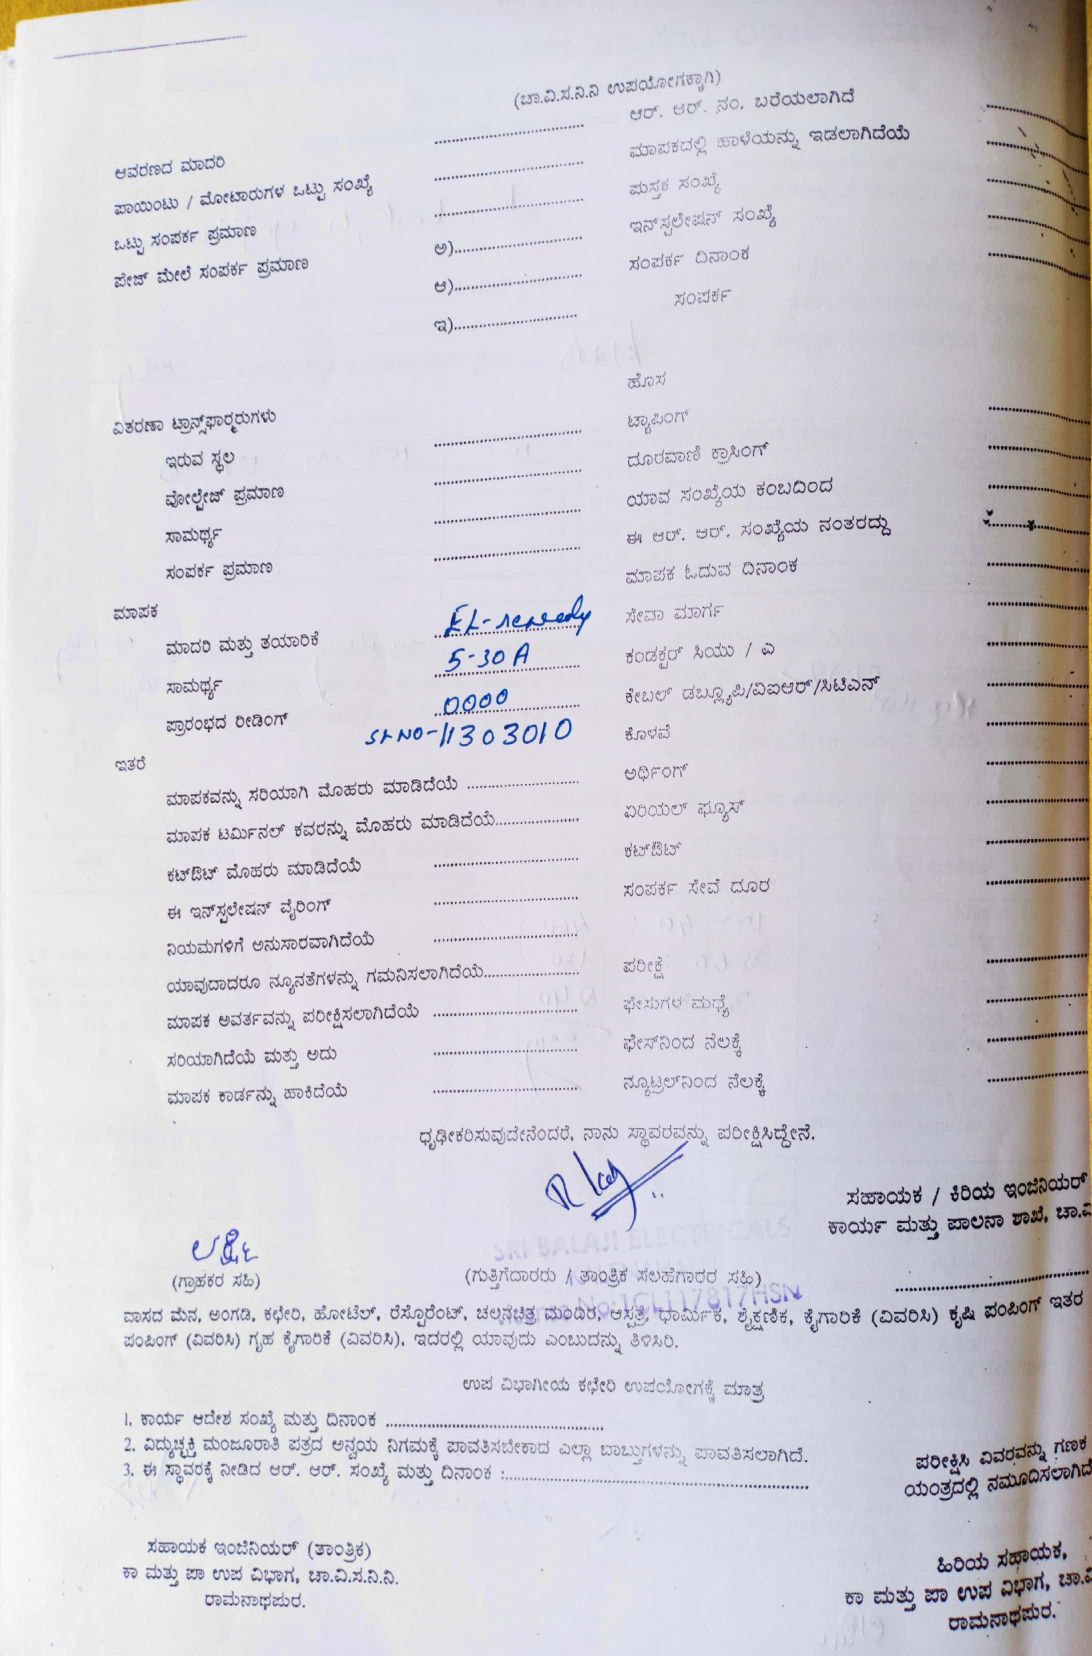 (ಚಾ.ವಿ.ಸ.ನಿ.ನಿ ಉಪಯೋಗಕ್ಕಾಗಿ)
ಆವರಣದ ಮಾದರಿ ....................
ಪಾಯಿಂಟು / ಮೋಟಾರುಗಳ ಒಟ್ಟು ಸಂಖ್ಯೆ ....................
ಒಟ್ಟು ಸಂಪರ್ಕ ಪ್ರಮಾಣ ....................
ಪೇಜ್ ಮೇಲೆ ಸಂಪರ್ಕ ಪ್ರಮಾಣ ಅ)....................
ಆ)....................
ಇ)....................
ಆರ್. ಆರ್. ನಂ. ಬರೆಯಲಾಗಿದೆ
ಮಾಪಕದಲ್ಲಿ ಹಾಳೆಯನ್ನು ಇಡಲಾಗಿದೆಯೆ
ಪುಸ್ತಕ ಸಂಖ್ಯೆ
ಇನ್‌ಸ್ಟಲೇಷನ್ ಸಂಖ್ಯೆ
ಸಂಪರ್ಕ ದಿನಾಂಕ
ಸಂಪರ್ಕ
ವಿತರಣಾ ಟ್ರಾನ್ಸ್‌ಫಾರ್ಮರುಗಳು
ಇರುವ ಸ್ಥಲ ....................
ವೋಲ್ಟೇಜ್ ಪ್ರಮಾಣ ....................
ಸಾಮರ್ಥ್ಯ ....................
ಸಂಪರ್ಕ ಪ್ರಮಾಣ ....................
ಹೊಸ
ಟ್ಯಾಪಿಂಗ್
ದೂರವಾಣಿ ಕ್ರಾಸಿಂಗ್
ಯಾವ ಸಂಖ್ಯೆಯ ಕಂಬದಿಂದ
ಈ ಆರ್. ಆರ್. ಸಂಖ್ಯೆಯ ನಂತರದ್ದು
ಮಾಪಕ ಓದುವ ದಿನಾಂಕ
ಮಾಪಕ
ಮಾದರಿ ಮತ್ತು ತಯಾರಿಕೆ
ಸಾಮರ್ಥ್ಯ 5-30 A
ಪ್ರಾರಂಭದ ರೀಡಿಂಗ್ 0000
Sl NO-11303010
ಸೇವಾ ಮಾರ್ಗ
ಕಂಡಕ್ಟರ್ ಸಿಯು / ಎ
ಕೇಬಲ್ ಡಬ್ಲ್ಯೂಪಿ/ವಿಐಆರ್/ಸಿಟಿಎಸ್
ಕೊಳವೆ
ಅರ್ಥಿಂಗ್
ಏರಿಯಲ್ ಫ್ಯೂಸ್
ಕಟ್‌ಔಟ್
ಸಂಪರ್ಕ ಸೇವೆ ದೂರ
ಇತರೆ
ಮಾಪಕವನ್ನು ಸರಿಯಾಗಿ ಮೊಹರು ಮಾಡಿದೆಯೆ ....................
ಮಾಪಕ ಟರ್ಮಿನಲ್ ಕವರನ್ನು ಮೊಹರು ಮಾಡಿದೆಯೆ....................
ಕಟ್‌ಔಟ್ ಮೊಹರು ಮಾಡಿದೆಯೆ ....................
ಈ ಇನ್‌ಸ್ಟಲೇಷನ್ ವೈರಿಂಗ್ ....................
ನಿಯಮಗಳಿಗೆ ಅನುಸಾರವಾಗಿದೆಯೆ ....................
ಯಾವುದಾದರೂ ನ್ಯೂನತೆಗಳನ್ನು ಗಮನಿಸಲಾಗಿದೆಯೆ....................
ಮಾಪಕ ಅವರ್ತವನ್ನು ಪರೀಕ್ಷಿಸಲಾಗಿದೆಯೆ ....................
ಸರಿಯಾಗಿದೆಯೆ ಮತ್ತು ಅದು ....................
ಮಾಪಕ ಕಾರ್ಡನ್ನು ಹಾಕಿದೆಯೆ ....................
ಪರೀಕ್ಷೆ
ಫೇಸುಗಳ ಮಧ್ಯೆ
ಫೇಸ್‌ನಿಂದ ನೆಲಕ್ಕೆ
ನ್ಯೂಟ್ರಲ್‌ನಿಂದ ನೆಲಕ್ಕೆ
ಧೃಢೀಕರಿಸುವುದೇನೆಂದರೆ, ನಾನು ಸ್ಥಾವರವನ್ನು ಪರೀಕ್ಷಿಸಿದ್ದೇನೆ.
ಸಹಾಯಕ / ಕಿರಿಯ ಇಂಜಿನಿಯರ್
ಕಾರ್ಯ ಮತ್ತು ಪಾಲನಾ ಶಾಖೆ, ಚಾ.ವಿ
SRI BALAJI ELECTRICALS
(ಗ್ರಾಹಕರ ಸಹಿ) (ಗುತ್ತಿಗೆದಾರರು / ತಾಂತ್ರಿಕ ಸಲಹೆಗಾರರ ಸಹಿ) ....................
No:1CL117817HSN
ವಾಸದ ಮನೆ, ಅಂಗಡಿ, ಕಛೇರಿ, ಹೋಟೆಲ್, ರೆಸ್ಟೊರೆಂಟ್, ಚಲನಚಿತ್ರ ಮಂದಿರ, ಆಸ್ಪತ್ರೆ, ಧಾರ್ಮಿಕ, ಶೈಕ್ಷಣಿಕ, ಕೈಗಾರಿಕೆ (ವಿವರಿಸಿ) ಕೃಷಿ ಪಂಪಿಂಗ್ ಇತರ
ಪಂಪಿಂಗ್ (ವಿವರಿಸಿ) ಗೃಹ ಕೈಗಾರಿಕೆ (ವಿವರಿಸಿ), ಇದರಲ್ಲಿ ಯಾವುದು ಎಂಬುದನ್ನು ತಿಳಿಸಿರಿ.
ಉಪ ವಿಭಾಗೀಯ ಕಛೇರಿ ಉಪಯೋಗಕ್ಕೆ ಮಾತ್ರ
1. ಕಾರ್ಯ ಆದೇಶ ಸಂಖ್ಯೆ ಮತ್ತು ದಿನಾಂಕ ....................
2. ವಿದ್ಯುಚ್ಛಕ್ತಿ ಮಂಜೂರಾತಿ ಪತ್ರದ ಅನ್ವಯ ನಿಗಮಕ್ಕೆ ಪಾವತಿಸಬೇಕಾದ ಎಲ್ಲಾ ಬಾಬ್ತುಗಳನ್ನು ಪಾವತಿಸಲಾಗಿದೆ.
3. ಈ ಸ್ಥಾವರಕ್ಕೆ ನೀಡಿದ ಆರ್. ಆರ್. ಸಂಖ್ಯೆ ಮತ್ತು ದಿನಾಂಕ :....................
ಪರೀಕ್ಷಿಸಿ ವಿವರವನ್ನು ಗಣಕ
ಯಂತ್ರದಲ್ಲಿ ನಮೂದಿಸಲಾಗಿದೆ
ಸಹಾಯಕ ಇಂಜಿನಿಯರ್ (ತಾಂತ್ರಿಕ)
ಕಾ ಮತ್ತು ಪಾ ಉಪ ವಿಭಾಗ, ಚಾ.ವಿ.ಸ.ನಿ.ನಿ.
ರಾಮನಾಥಪುರ.
ಹಿರಿಯ ಸಹಾಯಕ,
ಕಾ ಮತ್ತು ಪಾ ಉಪ ವಿಭಾಗ, ಚಾ.ವಿ
ರಾಮನಾಥಪುರ.